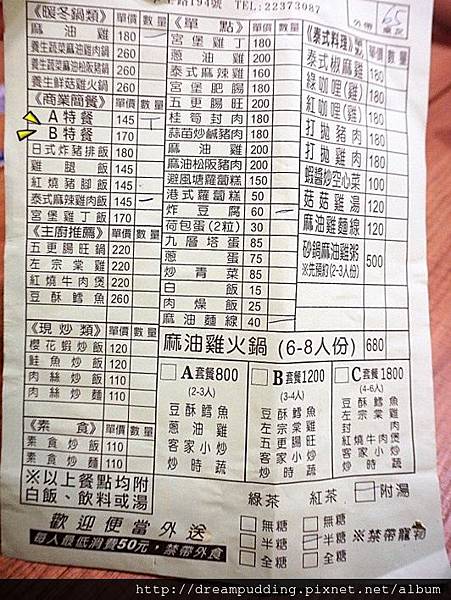 路194號 TEL:22373087
外帶 65 桌號
《暖冬鍋類》 單價 數量
麻油雞 180
養生蔬菜麻油雞肉鍋 260
養生蔬菜麻油松阪豬鍋 260
養生鮮菇雞火鍋 260
《商業簡餐》 單價 數量
A特餐 145
B特餐 170
日式炸豬排飯 180
雞腿飯 145
紅燒豬腳飯 145
泰式麻辣雞肉飯 145
宮堡雞丁飯 170
《主廚推薦》 單價 數量
五更腸旺鍋 220
左宗棠雞 220
紅燒牛肉煲 220
豆酥鱈魚 260
《現炒類》 單價 數量
櫻花蝦炒飯 120
鮭魚炒飯 120
肉絲炒飯 110
肉絲炒麵 110
《素食》 單價 數量
素食炒飯 110
素食炒麵 110
※以上餐點均附
白飯、飲料或湯
《單點》 單價 數量
宮堡雞丁 180
蔥油雞 200
泰式麻辣雞 160
宮堡肥腸 180
五更腸旺 200
桂筍封肉 180
蒜苗炒鹹豬肉 180
麻油雞 180
麻油松阪豬肉 200
避風塘蘿蔔糕 150
港式蘿蔔糕 50
炸豆腐 60
荷包蛋(2粒) 30
九層塔蛋 85
蔥蛋 75
炒青菜 85
白飯 15
肉燥飯 25
麻油麵線 40
《泰式料理》 單價 數量
泰式椒麻雞 180
綠咖哩(雞) 180
紅咖哩(雞) 180
打拋豬肉 180
打拋雞肉 180
蝦醬炒空心菜 100
菇菇雞湯 120
麻油雞麵線 120
砂鍋麻油雞粥 500
※先預約(2-3人份)
麻油雞火鍋 (6-8人份) 680
A套餐800
(2-3人)
豆酥鱈魚
蔥油雞
客家小炒
炒時蔬
B套餐1200
(3-4人)
豆酥鱈魚
左宗棠雞
五更腸旺
客家小炒
炒時蔬
C套餐1800
(4-6人)
豆酥鱈魚
左宗棠雞
封肉
紅燒牛肉煲
客家小炒
炒時蔬
綠茶 紅茶 附湯
無糖 無糖
半糖 半糖 ※禁帶寵物
全糖 全糖
歡迎便當外送
每人最低消費50元，禁帶外食
http://dreampudding.pixnet.net/album